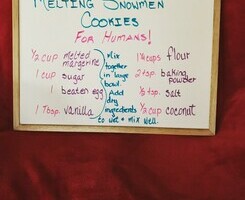 Melting Snowmen
Cookies
For Humans!
1/2 cup melted
margerine
1 cup sugar
1 beaten egg
1 Tbsp. vanilla
Mix
together
in large
bowl.
Add
dry
ingredients
to wet & mix well.
flour
2 tsp. baking
powder
tsp. salt
1/2 cup coconut